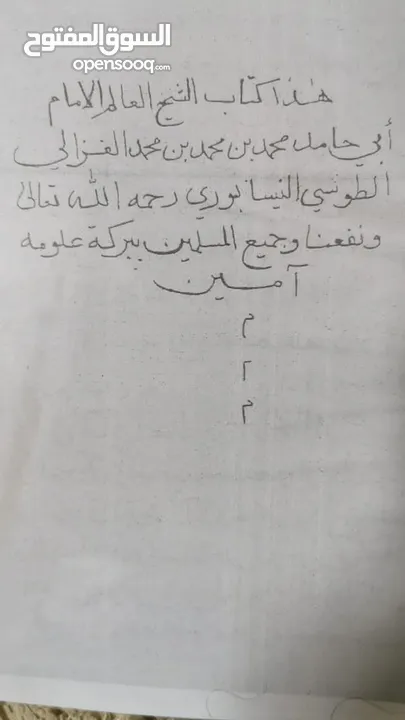 السوق المفتوح
opensooq.com
هذا كتاب الشيخ العالم الإمام
أبي حامد محمد بن محمد بن محمد الغزالي
الطوسي النيسابوري رحمه الله تعالى
ونفعنا وجميع المسلمين ببركة علومه
آمــين
م
م
م